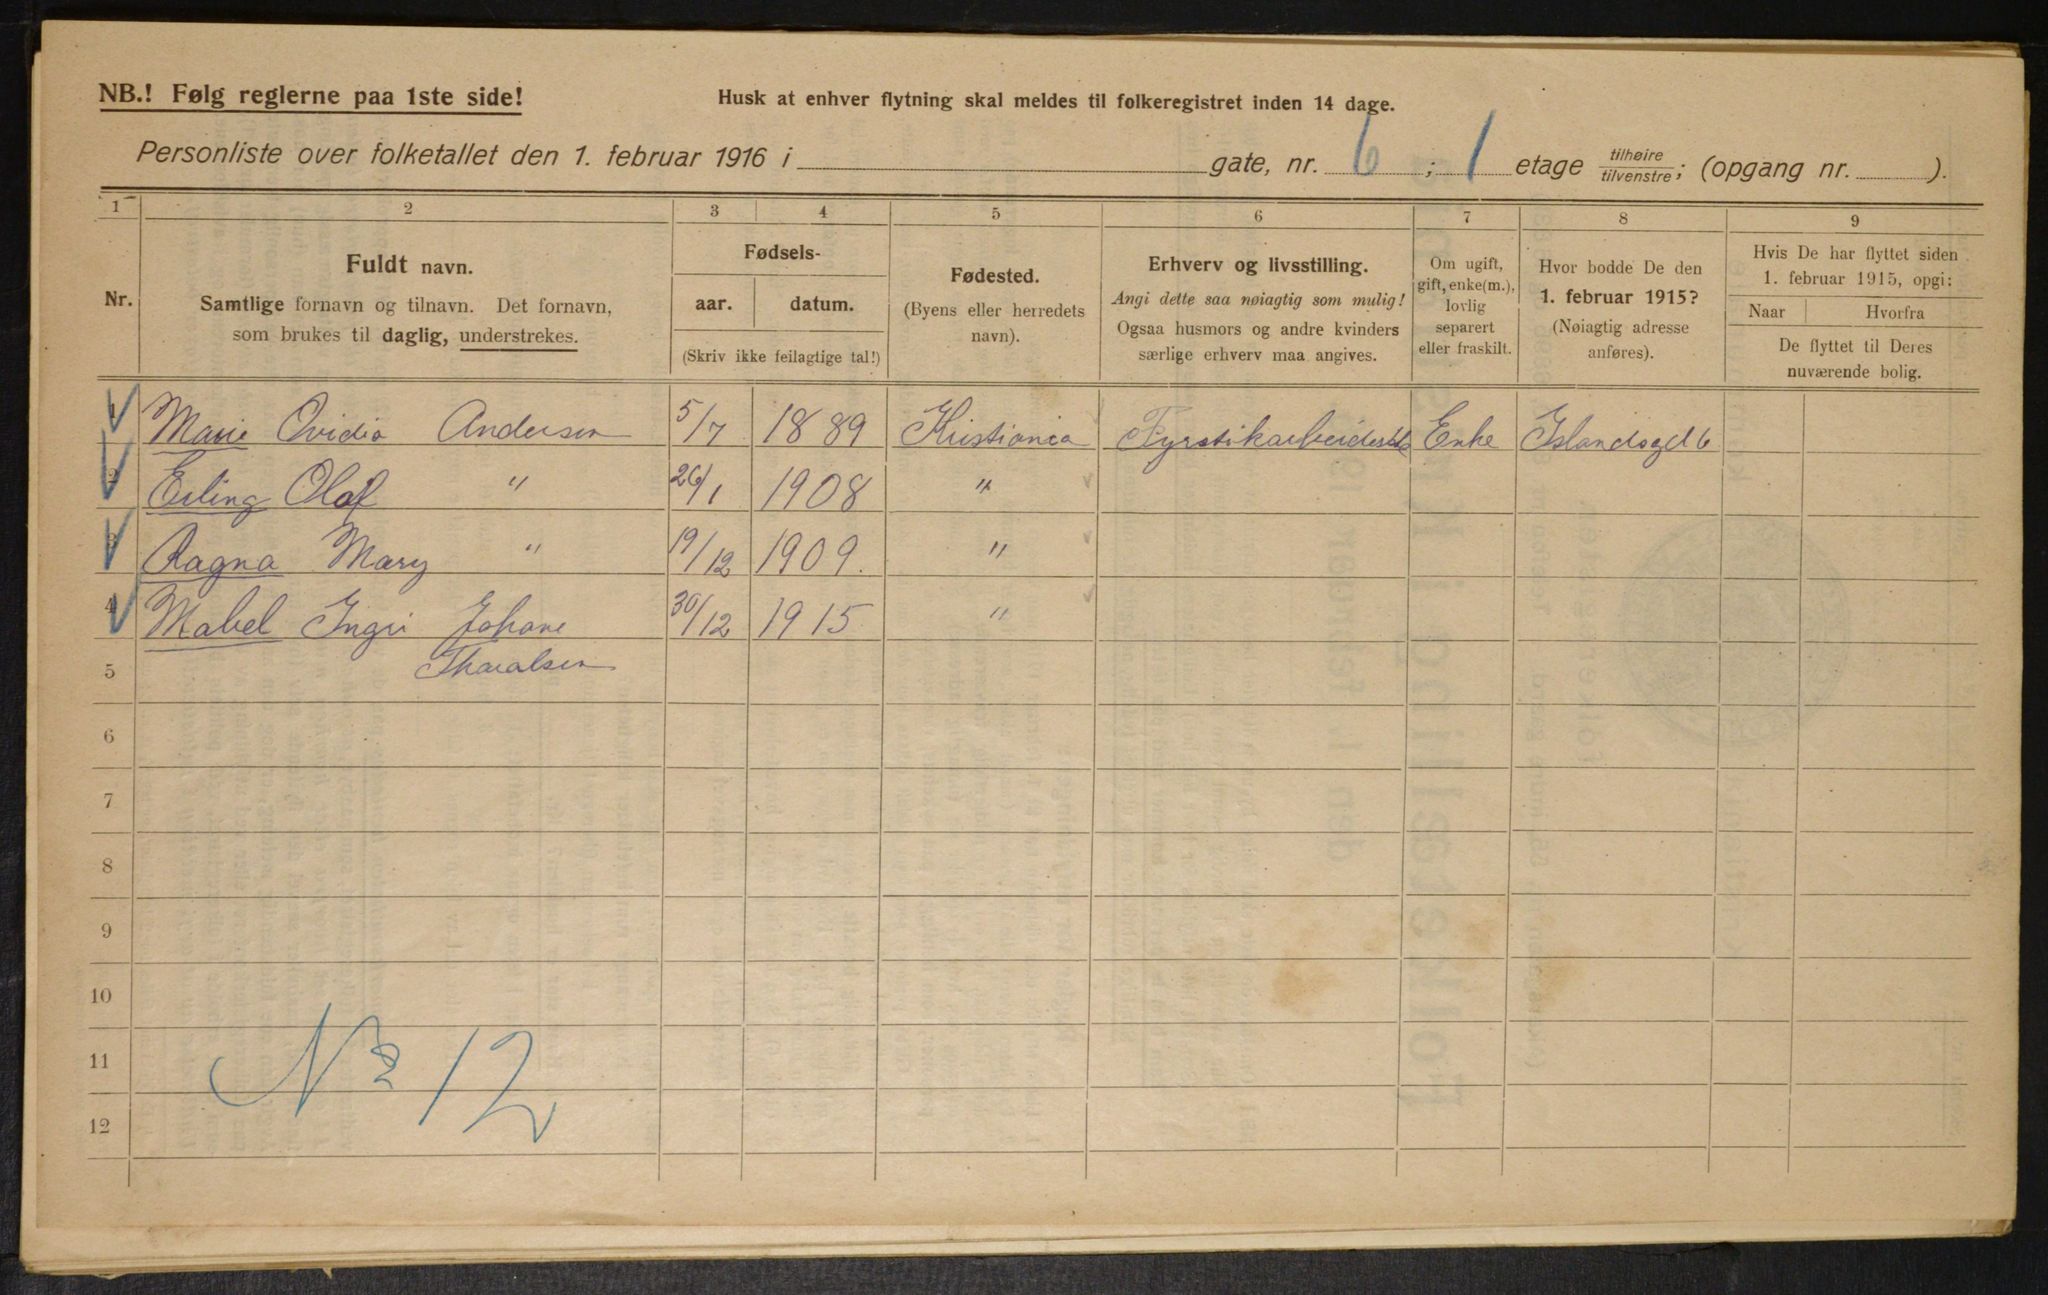 NB.! Følg reglerne paa 1ste side!
Husk at enhver flytning skal meldes til folkeregistret inden 14 dage.
Personliste over folketallet den 1. februar 1916 i gate, nr. 6 ; 1 etage tilhøire tilvenstre; (opgang nr. ).
1 2 3 4 5 6 7 8 9
Nr.
Fuldt navn.
Samtlige fornavn og tilnavn. Det fornavn,
som brukes til daglig, understrekes.
Fødsels-
aar. datum.
(Skriv ikke feilagtige tal!)
Fødested.
(Byens eller herredets
navn).
Erhverv og livsstilling.
Angi dette saa nøiagtig som mulig!
Ogsaa husmors og andre kvinders
særlige erhverv maa angives.
Om ugift,
gift, enke(m.),
lovlig
separert
eller fraskilt.
Hvor bodde De den
1. februar 1915?
(Nøiagtig adresse
anføres).
Hvis De har flyttet siden
1. februar 1915, opgi:
Naar Hvorfra
De flyttet til Deres
nuværende bolig.
1 Marie Ovidia Andersen 5/7 1889 Kristiania Fyrstikarbeiderske Enke Islandsgd 6
2 Erling Olaf " 26/1 1908 "
3 Ragna Mary " 19/12 1909. "
4 Mabel Ingri Johane 30/12 1915 "
5 Tharalsen
6
7
8
9
10
11
12
No 12